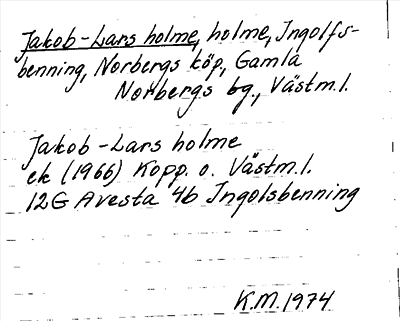 Jakob-Lars holme, holme, Ingolfs-
benning, Norbergs köp., Gamla
Norbergs bg., Västm.l.
Jakob-Lars holme
ek (1966) Kopp. o. Västm.l.
12G Avesta 4b Ingolsbenning
K.M. 1974